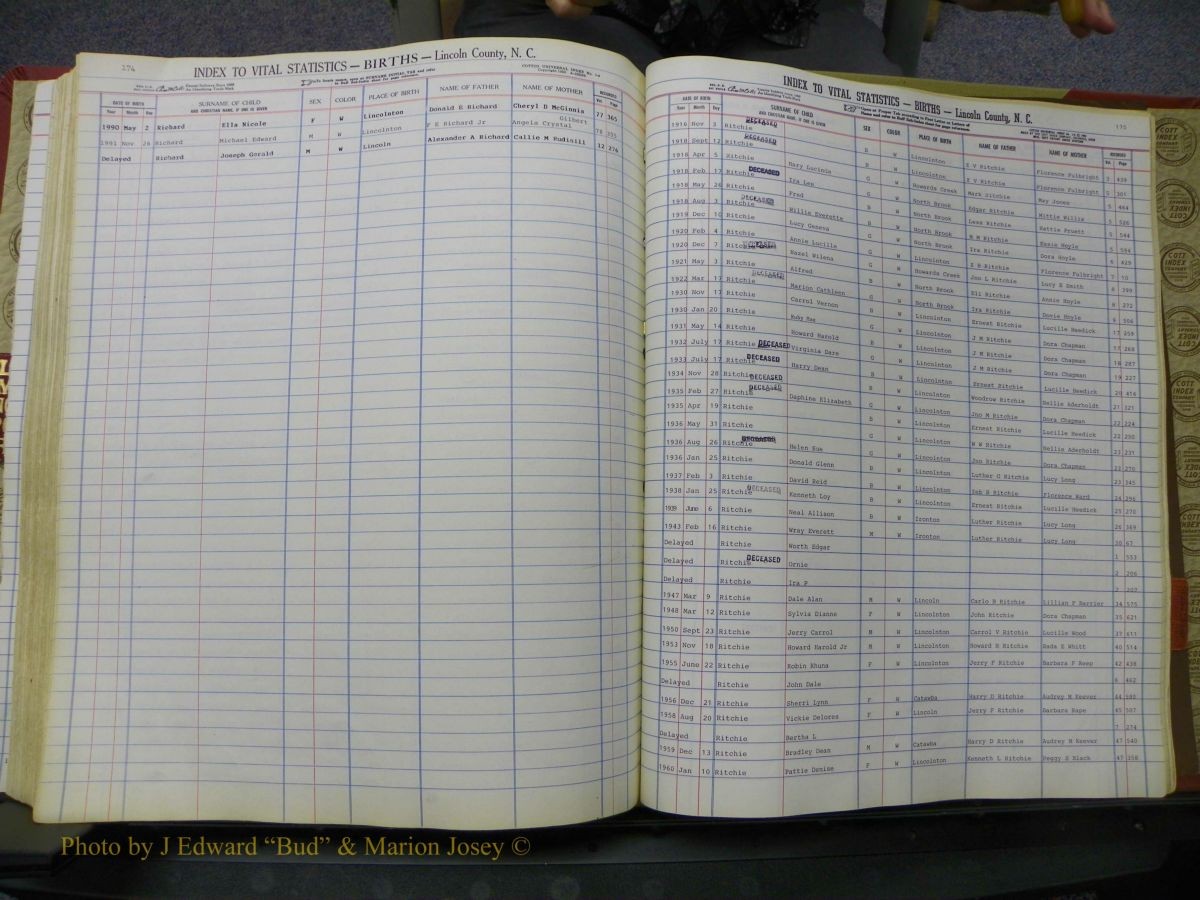 174
INDEX TO VITAL STATISTICS — BIRTHS — Lincoln County, N. C.
DATE OF BIRTH
Year Month Day
SURNAME OF CHILD
AND CHRISTIAN NAME, IF ONE IS GIVEN
SEX
COLOR
PLACE OF BIRTH
NAME OF FATHER
NAME OF MOTHER
RECORDED
Vol. Page
1990 May 2 Richard Ella Nicole F W Lincolnton Donald E Richard Cheryl D McGinnis 77 365
1991 Nov 26 Richard Michael Edward M W Lincolnton F E Richard Jr Angela Crystal Gilbert 78 355
Delayed Richard Joseph Gerald M W Lincoln Alexander A Richard Callie M Rudisill 12 276
INDEX TO VITAL STATISTICS — BIRTHS — Lincoln County, N. C.
175
DATE OF BIRTH
Year Month Day
SURNAME OF CHILD
AND CHRISTIAN NAME, IF ONE IS GIVEN
SEX
COLOR
PLACE OF BIRTH
NAME OF FATHER
NAME OF MOTHER
RECORDED
Vol. Page
1916 Nov 3 Ritchie DECEASED B W Lincolnton E V Ritchie Florence Fulbright 3 439
1918 Sept 12 Ritchie DECEASED B W Lincolnton E V Ritchie Florence Fulbright 5 301
1918 Apr 5 Ritchie Mary Lucinda G W Howards Creek Mark Ritchie May Jones 5 464
1918 Feb 17 Ritchie DECEASED Ira Lee W North Brook Edgar Ritchie Mittie Willis 5 526
1918 May 26 Ritchie Fred W North Brook Lewa Ritchie Hattie Pruett 5 544
1918 Aug 3 Ritchie DECEASED Willie Everette B W North Brook W M Ritchie Essie Hoyle 5 594
1919 Dec 10 Ritchie Lucy Geneva G W North Brook Ira Ritchie Dora Hoyle 6 429
1920 Feb 4 Ritchie Annie Lucille G W Lincolnton E B Ritchie Florence Fulbright 7 10
1920 Dec 7 Ritchie DECEASED Hazel Wilena G W Howards Creek Jon L Ritchie Lucy E Smith 6 399
1921 May 3 Ritchie Alfred B W North Brook Eli Ritchie Annie Hoyle 8 272
1922 Mar 17 Ritchie DECEASED Marion Cathleen G W North Brook Ira Ritchie Dovie Hoyle 9 506
1930 Nov 17 Ritchie Carrol Vernon B W Lincolnton Ernest Ritchie Lucille Heedick 17 259
1930 Jan 20 Ritchie Ruby Mae G W Lincolnton J M Ritchie Dora Chapman 18 268
1931 May 14 Ritchie Howard Harold B W Lincolnton J M Ritchie Dora Chapman 18 287
1932 July 17 Ritchie DECEASED Virginia Dare G W Lincolnton J M Ritchie Dora Chapman 19 227
1933 July 17 Ritchie DECEASED Harry Dean B W Lincolnton Ernest Ritchie Lucille Heedick 20 416
1934 Nov 28 Ritchie DECEASED B W Lincolnton Woodrow Ritchie Nellie Aderholdt 21 321
1935 Feb 27 Ritchie DECEASED Daphine Elizabeth G W Lincolnton Jno M Ritchie Dora Chapman 22 224
1935 Apr 19 Ritchie B W Lincolnton Ernest Ritchie Lucille Heedick 22 250
1936 May 31 Ritchie G W Lincolnton W W Ritchie Nellie Aderholdt 23 231
1936 Aug 26 Ritchie DECEASED Helen Sue G W Lincolnton Jon Ritchie Dora Chapman 23 270
1936 Jan 25 Ritchie Donald Glenn B W Lincolnton Luther G Ritchie Lucy Long 23 345
1937 Feb 3 Ritchie David Reid B W Lincolnton Zeb B Ritchie Florence Ward 24 296
1938 Jan 25 Ritchie DECEASED Kenneth Loy B W Lincolnton Ernest Ritchie Lucille Heedick 25 270
1939 June 6 Ritchie Neal Allison B W Ironton Luther Ritchie Lucy Long 26 369
1943 Feb 16 Ritchie Wray Everett M W Ironton Luther Ritchie Lucy Long 30 67
Delayed Ritchie Worth Edgar 1 553
Delayed Ritchie DECEASED Ornie 2 206
Delayed Ritchie Ira P 2 207
1947 Mar 9 Ritchie Dale Alan M W Lincoln Carlo B Ritchie Lillian F Barrier 34 575
1948 Mar 12 Ritchie Sylvia Dianne F W Lincolnton John Ritchie Dora Chapman 35 621
1950 Sept 23 Ritchie Jerry Carrol M W Lincolnton Carrol V Ritchie Lucille Wood 37 611
1953 Nov 18 Ritchie Howard Harold Jr M W Lincolnton Howard H Ritchie Rada E Whitt 40 514
1955 June 22 Ritchie Robin Rhuna F W Lincolnton Jerry F Ritchie Barbara F Reep 42 438
Delayed Ritchie John Dale 6 462
1956 Dec 21 Ritchie Sherri Lynn F W Catawba Harry D Ritchie Audrey M Keever 44 580
1958 Aug 20 Ritchie Vickie Delores F W Lincoln Jerry F Ritchie Barbara Rape 45 507
Delayed Ritchie Bertha L 7 274
1959 Dec 13 Ritchie Bradley Dean M W Catawba Harry D Ritchie Audrey M Keever 47 540
1960 Jan 10 Ritchie Pattie Denise F W Lincolnton Kenneth L Ritchie Peggy S Black 47 358
Photo by J Edward “Bud” & Marion Josey ©